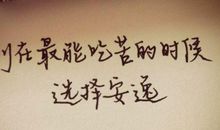 在最能吃苦的时候
选择安逸